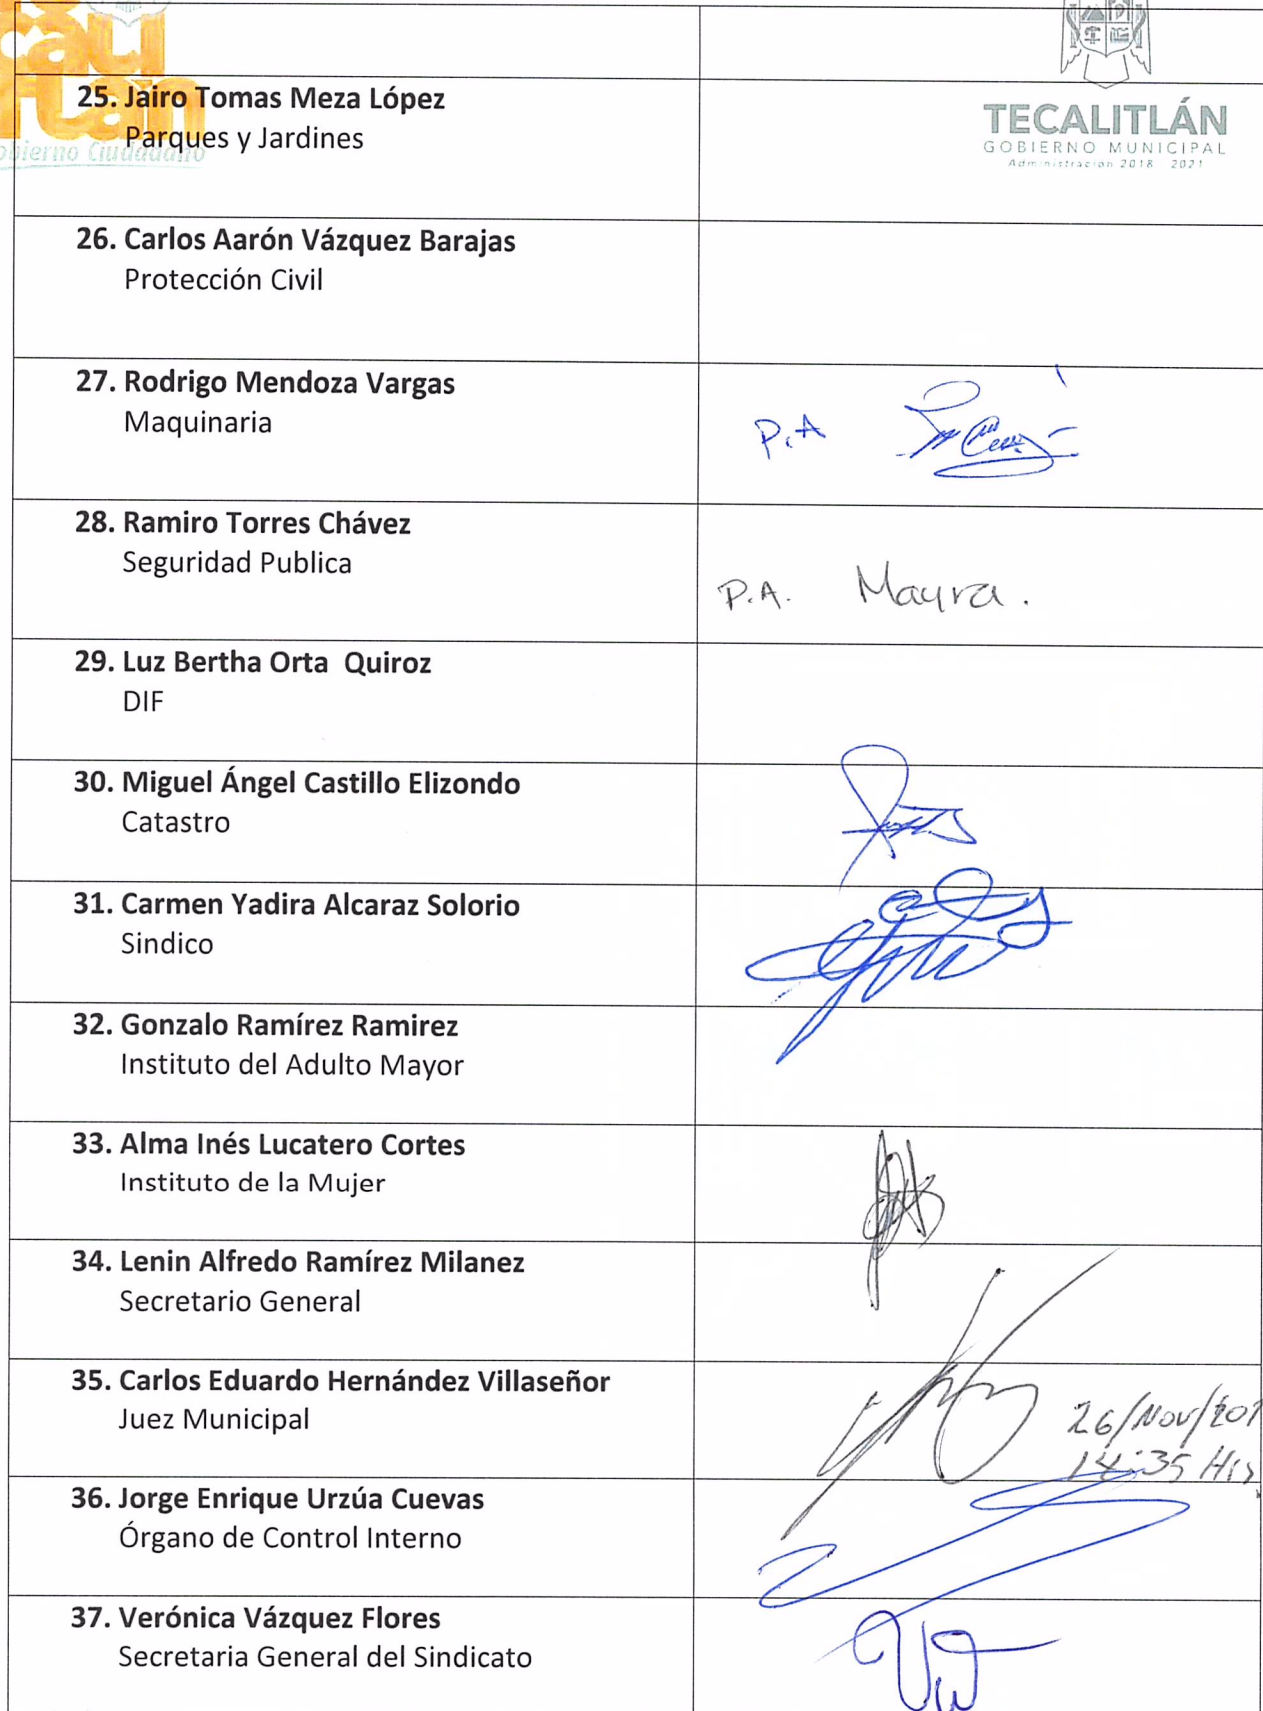 TECALITLÁN
GOBIERNO MUNICIPAL
Administración 2018 2021
Gobierno Ciudadano
25. Jairo Tomas Meza López
Parques y Jardines
26. Carlos Aarón Vázquez Barajas
Protección Civil
27. Rodrigo Mendoza Vargas
Maquinaria
P.A
28. Ramiro Torres Chávez
Seguridad Publica
P.A. Mayra.
29. Luz Bertha Orta Quiroz
DIF
30. Miguel Ángel Castillo Elizondo
Catastro
31. Carmen Yadira Alcaraz Solorio
Sindico
32. Gonzalo Ramírez Ramirez
Instituto del Adulto Mayor
33. Alma Inés Lucatero Cortes
Instituto de la Mujer
34. Lenin Alfredo Ramírez Milanez
Secretario General
35. Carlos Eduardo Hernández Villaseñor
Juez Municipal
26/Nov/201
14:35 Hrs
36. Jorge Enrique Urzúa Cuevas
Órgano de Control Interno
37. Verónica Vázquez Flores
Secretaria General del Sindicato